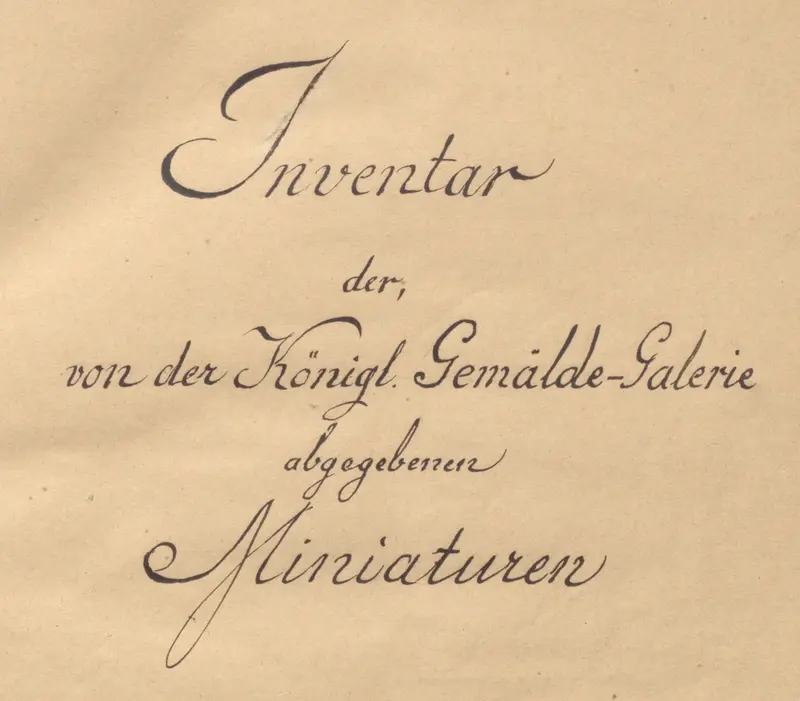 Inventar
der,
von der Königl. Gemälde-Galerie
abgegebenen
Miniaturen